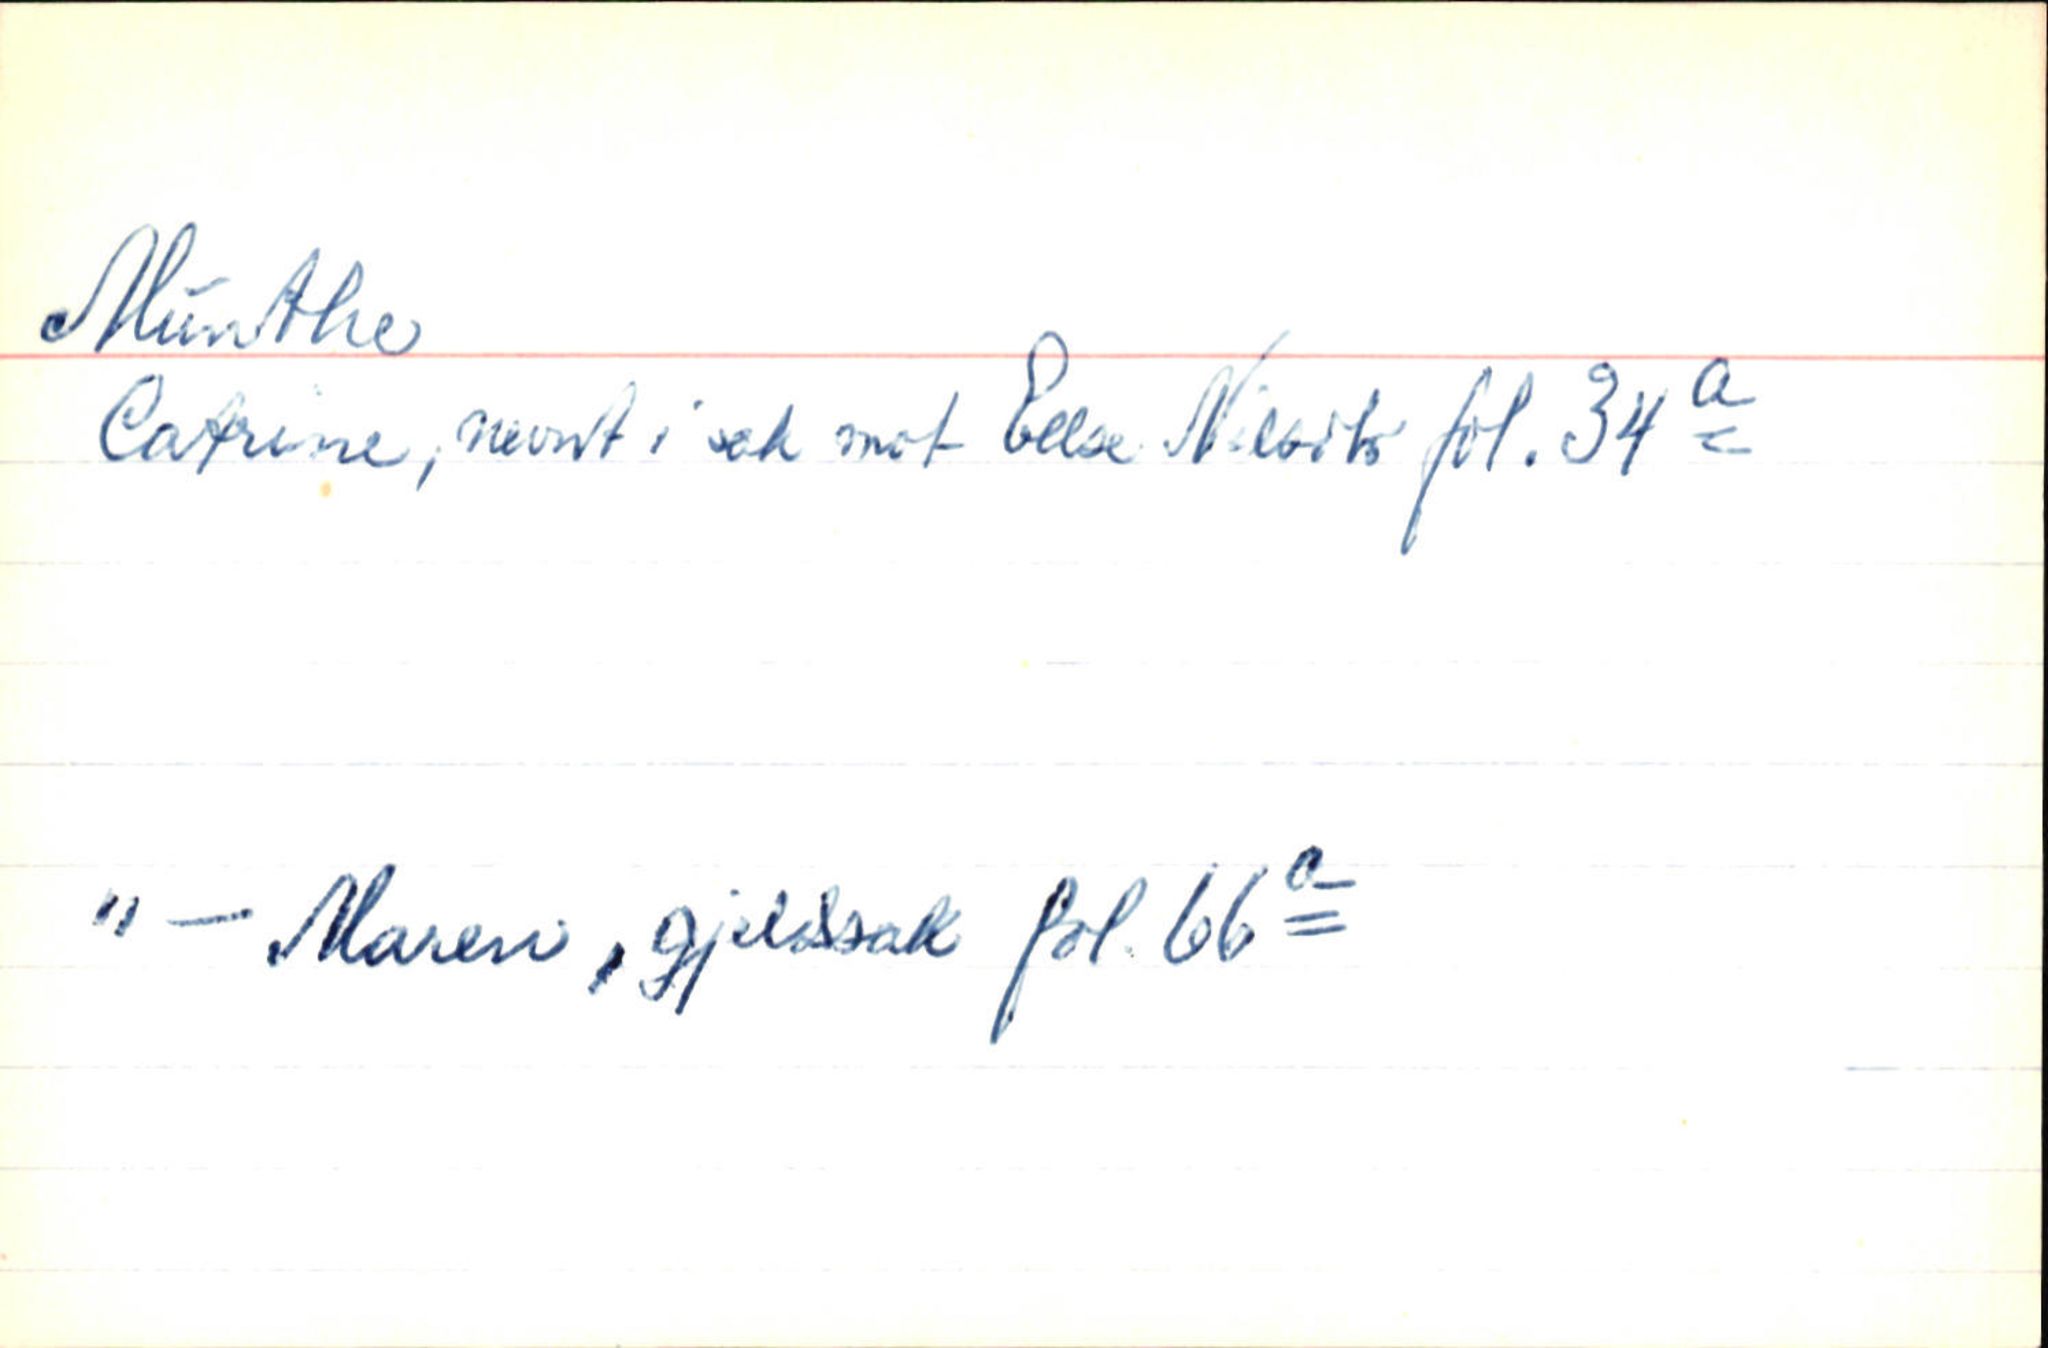 Munthe
Catrine, nevnt i sak mot Else Nilsdtr fol. 34 a
" — Maren, gjeldssak fol. 66 a